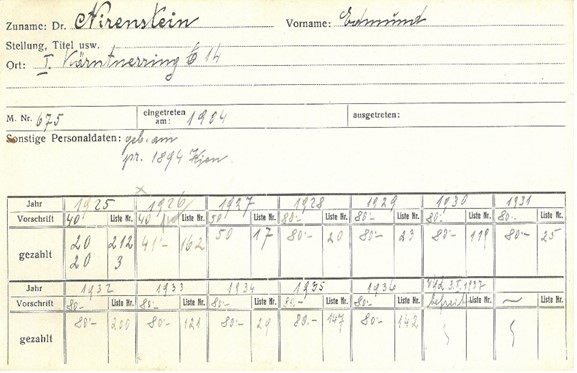 Zuname: Dr. Nirenstein Vorname: Edmund
Stellung, Titel usw.
Ort: I. Kärntnerring 14
M. Nr. 675 eingetreten am: 1904 ausgetreten:
Sonstige Personaldaten: geb. am
pr. 1894 Wien
Jahr 1925 1926 1927 1928 1929 1930 1931
Vorschrift 40 Liste Nr. 40 Liste Nr. 50 Liste Nr. 80.- Liste Nr. 80.- Liste Nr. 80.- Liste Nr. 80.- Liste Nr.
gezahlt 20 212 41.- 162 50 17 80.- 20 80.- 23 80.- 119 80.- 25
20 3
Jahr 1932 1933 1934 1935 1936 1937
Vorschrift 80.- Liste Nr. 80.- Liste Nr. 80.- Liste Nr. 80.- Liste Nr. 80.- Liste Nr. befreit Liste Nr. ~ Liste Nr.
gezahlt 80.- 200 80.- 121 80.- 29 80.- 147 80.- 142